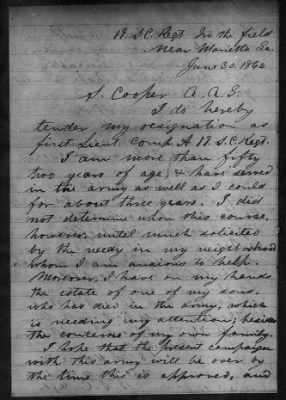 19. S.C. Regt In the field
Near Marietta Ga.
June 30. 1864
S. Cooper A.A.G.
I do hereby
tender my resignation as
first Lieut Comp A 19. S.C. Regt.
I am more than fifty
two years of age, & have served
in the army as well as I could
for about three years. I did
not determine upon this course,
however, until much solicited
by the needy in my neighborhood
whom I am anxious to help.
Moreover, I have on my hands
the estate of one of my sons,
who has died in the army, which
is needing my attention; besides
the concerns of my own family.
I hope that the present campaign
with this army will be over by
the time this is approved, and